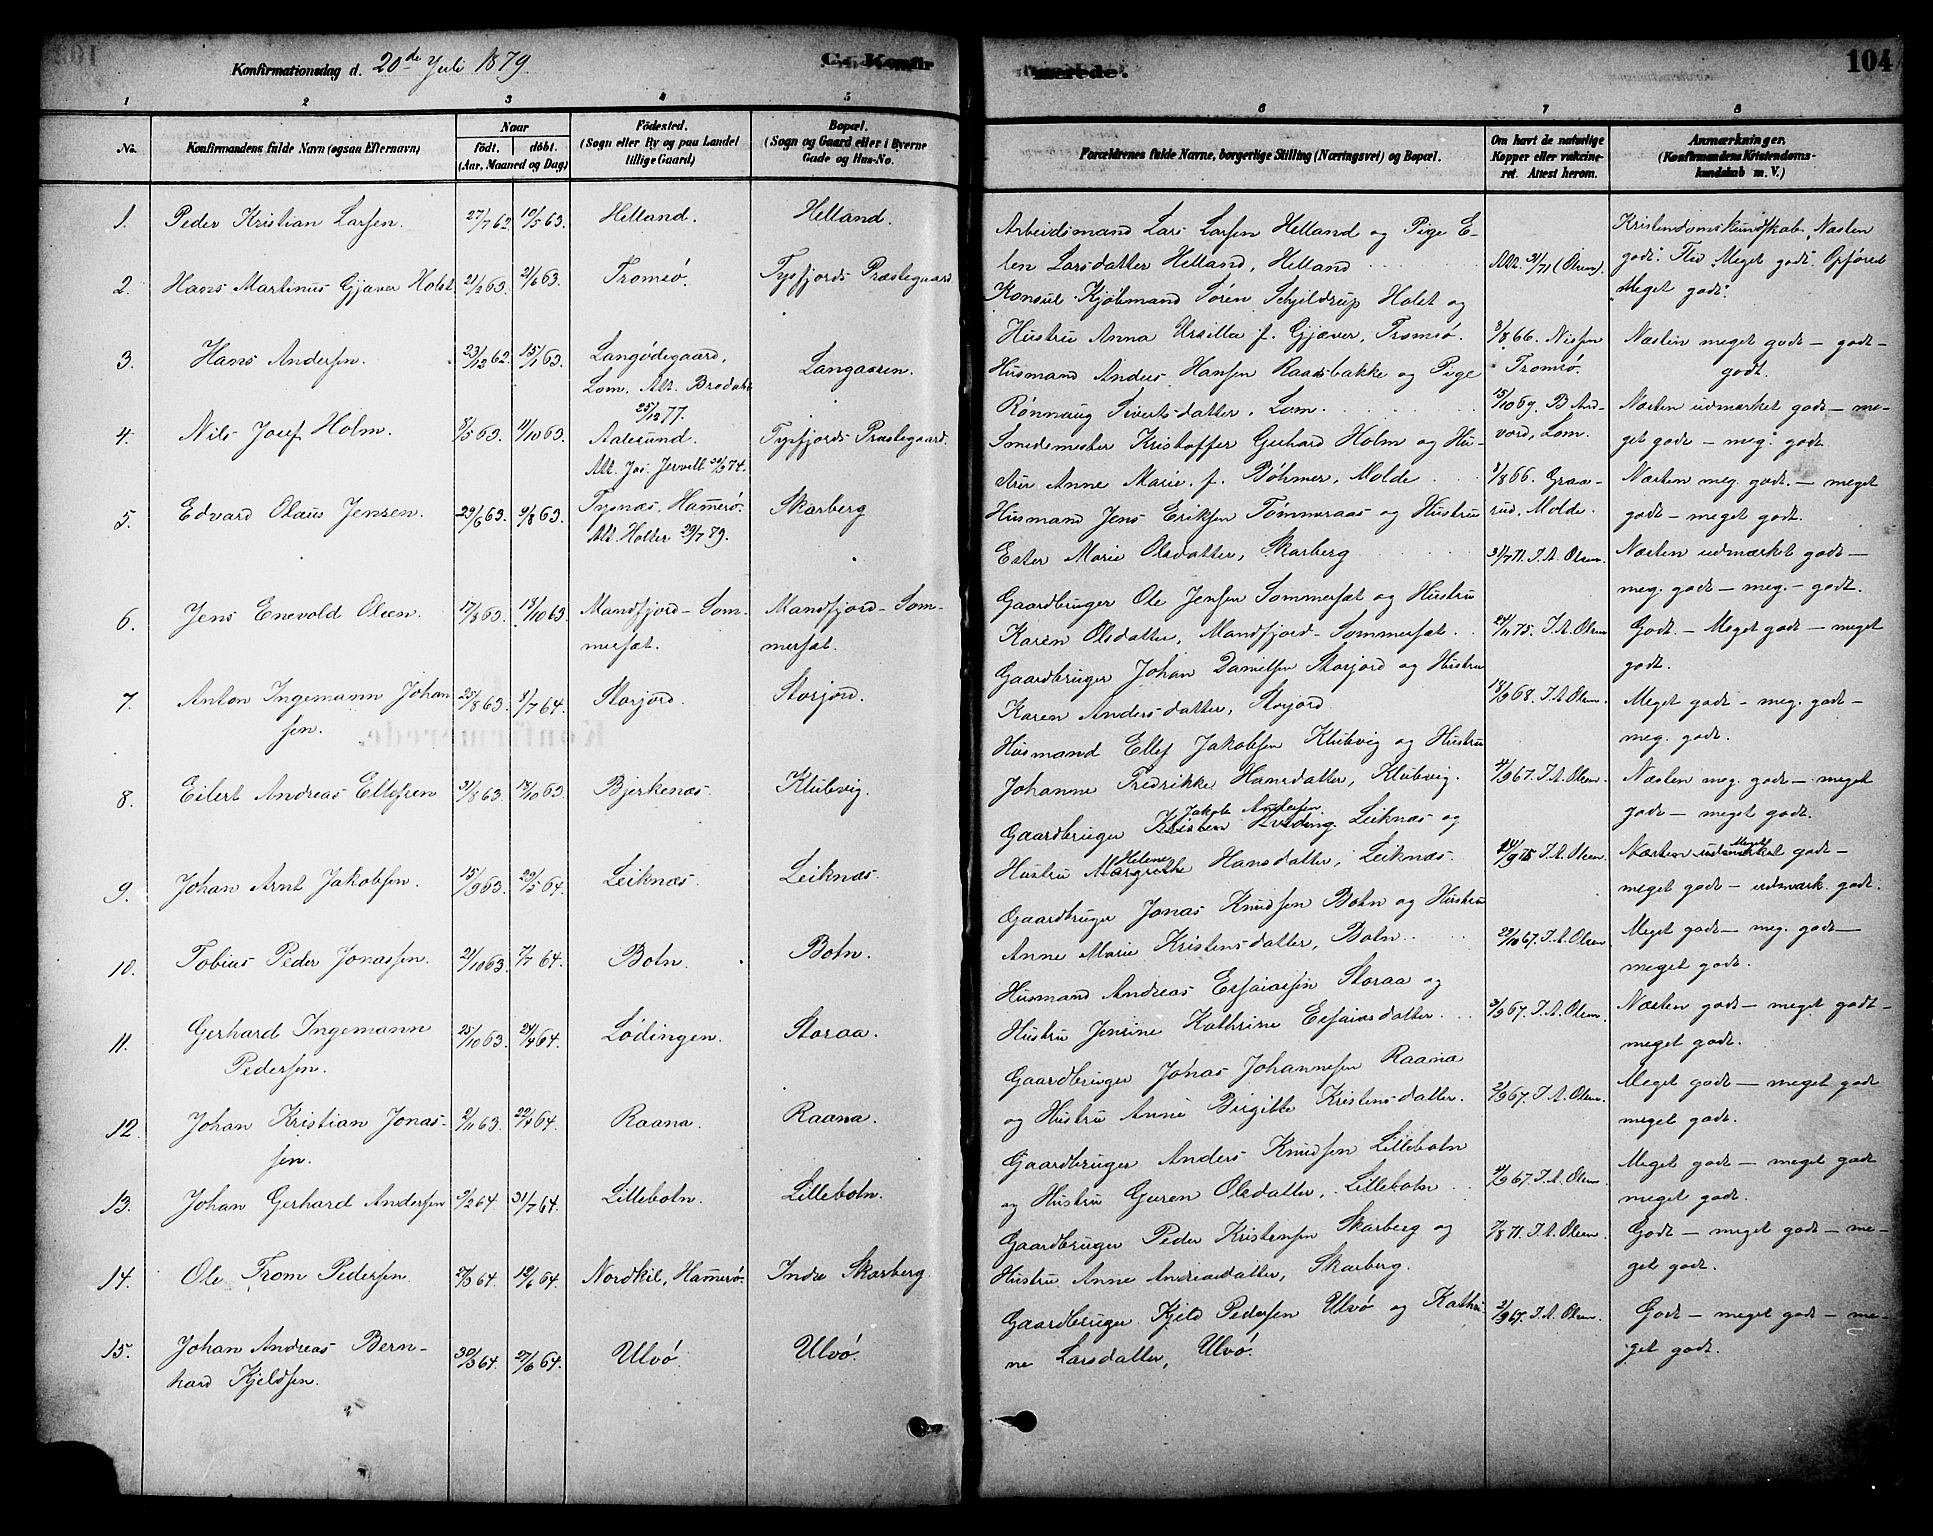 Konfirmationsdag d. 20de Juli 1879.
C. Konfir
1 2 3 4 5
No.
Konfirmandens fulde Navn (ogsaa Efternavn)
Naar
födt. döbt.
(Aar, Maaned og Dag)
Födested.
(Sogn eller By og paa Landet
tillige Gaard.)
Bopæl.
(Sogn og Gaard eller i Byerne
Gade og Hus-No.
1. Peder Kristian Larsen. 27/7 62 10/5 63. Helland. Helland.
2. Hans Martinus Gjæver Holst 21/2 63. 21/6 63. Tromsö. Tysfjords Præstegaard
3. Hans Andersen. 23/12 62. 15/1 63. Langødegaard, Langaaren.
Lom. Att. Brodahl
25/12 77.
4. Nils Josef Holm. 7/5 63. 11/10 63. Aalesund. Tysfjords Præstegaard.
Att. Jas. Jervell 30/9 74.
5. Edvard Olaus Jensen. 29/6 63. 9/8 63. Tysnæs, Hamerö. Skarberg
Att. Holter 29/7 79.
6. Jens Enevold Olsen. 17/8 63. 18/10 63. Mandfjord-Som- Mandfjord-Som-
mersæt. mersæt.
7. Anton Ingemann Johan 25/8 63. 8/7 64. Storjord. Storjord.
sen.
8. Eilert Andreas Ellefsen 31/8 63. 18/10 63. Bjerkenæs. Klubvig.
9. Johan Arnt Jakobsen. 15/9 63. 29/5 64. Leiknæs. Leiknæs.
10. Tobias Peder Jonassen. 21/10 63. 7/7 64. Botn. Botn.
11. Gerhard Ingemann 25/10 63. 24/4 64. Lödingen. Storaa.
Pedersen.
12. Johan Kristian Jonas- 2/11 63. 22/4 64. Raana. Raana.
sen.
13. Johan Gerhard Andersen 9/2 64. 31/7 64. Lillebotn. Lillebotn.
14. Ole From Pedersen 27/3 64. 19/6 64. Nordkil, Hamerö. Indre Skarberg.
15. Johan Andreas Bern- 30/3 64. 27/6 64. Ulvö. Ulvö.
hard Kjeldsen.
merede.
104
6 7 8
Forældrenes fulde Navne, borgerlige Stilling (Næringsvei) og Bopæl.
Om havt de naturlige
Kopper eller vaccine-
ret. Attest herom.
Anmærkninger.
(Konfirmandens Kristendoms-
kundskab m. V.)
Arbeidsmand Lars Larsen Helland og Pige E-
len Larsdatter Helland, Helland 31/71 (Olsen).
Kristendomskundskab, Næsten
godt. Flid Meget godt. Opførsel
Meget godt.
Konsul Kjöbmand Sören Schjeldrup Holst og
Hustru Anna Ursilla f. Gjæver, Tromsö. 3/8 66. Nissen
Tromsö.
Næsten meget godt — godt —
godt.
Husmand Anders Hansen Raasbakke og Pige
Rönnaug Sivertsdatter, Lom. 15/10 69. B. And-
vord, Lom.
Næsten udmærket godt — me-
get godt — meg. godt.
Smedemester Kristoffer Gerhard Holm og Hu-
stru Anne Marie f. Böhmer, Molde 8/8 66. Graa-
rud, Molde.
Næsten meg. godt. — meget
godt — meget godt.
Husmand Jens Eriksen Tömmeraas og Hustru
Ester Marie Olsdatter, Skarberg 31/7 71. J. A. Olsen.
Næsten udmærket godt —
meg. godt — meg. — godt.
Gaardbruger Ole Jensen Sommersæt og Hustru
Karen Olsdatter, Mandfjord-Sommersæt. 24/11 75. J. A. Olsen
Godt — Meget godt — meget
godt.
Gaardbruger Johan Danielsen Storjord og Hustru
Karen Andersdatter, Storjord 18/9 68. J. A. Olsen.
Meget godt — meg. godt —
meg. godt.
Husmand Ellef Jakobsen Klubvig og Hustru
Johanne Fredrikke Hansdatter, Klubvig. 4/9 67. J. A. Olsen.
Næsten meg. godt — meget
godt — meget godt.
Jakob Andersen
Gaardbruger Kristen Kveding Leiknæs og
Helene
Hustru Margrethe Hansdatter, Leiknæs. 14/9 75 J. A. Olsen.
Meget
Næsten udmærket godt —
meget godt — udmærk. godt.
Gaardbruger Jonas Knudsen Botn og Hustru
Anne Marie Kristensdatter, Botn 22/10 67. J. A. Olsen.
Meget godt — meg. godt —
meget godt.
Husmand Andreas Esfaiasen Storaa og
Hustru Jensine Kathrine Esfaiasdatter. 3/9 67. J. A. Olsen.
Næsten godt — meget godt —
meget godt.
Gaardbruger Jonas Johannesen Raana
og Hustru Anne Birgitte Kristensdatter. 2/9 67. J. A. Olsen.
Meget godt — meget godt
meget godt.
Gaardbruger Anders Knudsen Lillebotn
og Hustru Guren Olsdatter, Lillebotn 4/9 67. J. A. Olsen.
Meget godt — meget godt
meget godt.
Gaardbruger Peder Kristensen Skarberg og
Hustru Anne Andreasdatter, Skarberg. 7/8 71. J. A. Olsen
Godt — meget godt — me-
get godt.
Gaardbruger Kjeld Pedersen Ulvö og Kathri
ne Larsdatter, Ulvö. 2/9 67. J. A. Olsen.
Godt — meget godt — me-
get godt.